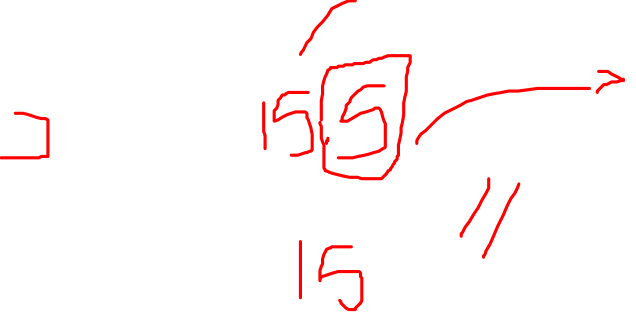 15.5
15